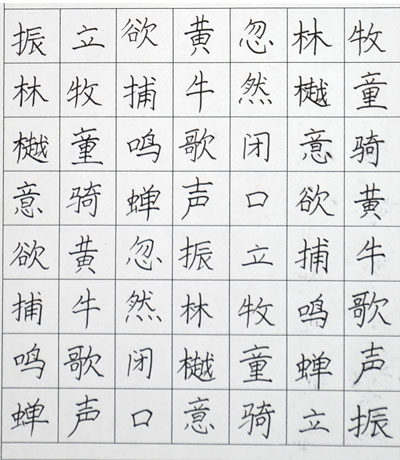 振立欲黄忽林牧
林牧捕牛然樾童
樾童鸣歌闭意骑
意骑蝉声口欲黄
欲黄忽振立捕牛
捕牛然林牧鸣歌
鸣歌闭樾童蝉声
蝉声口意骑立振